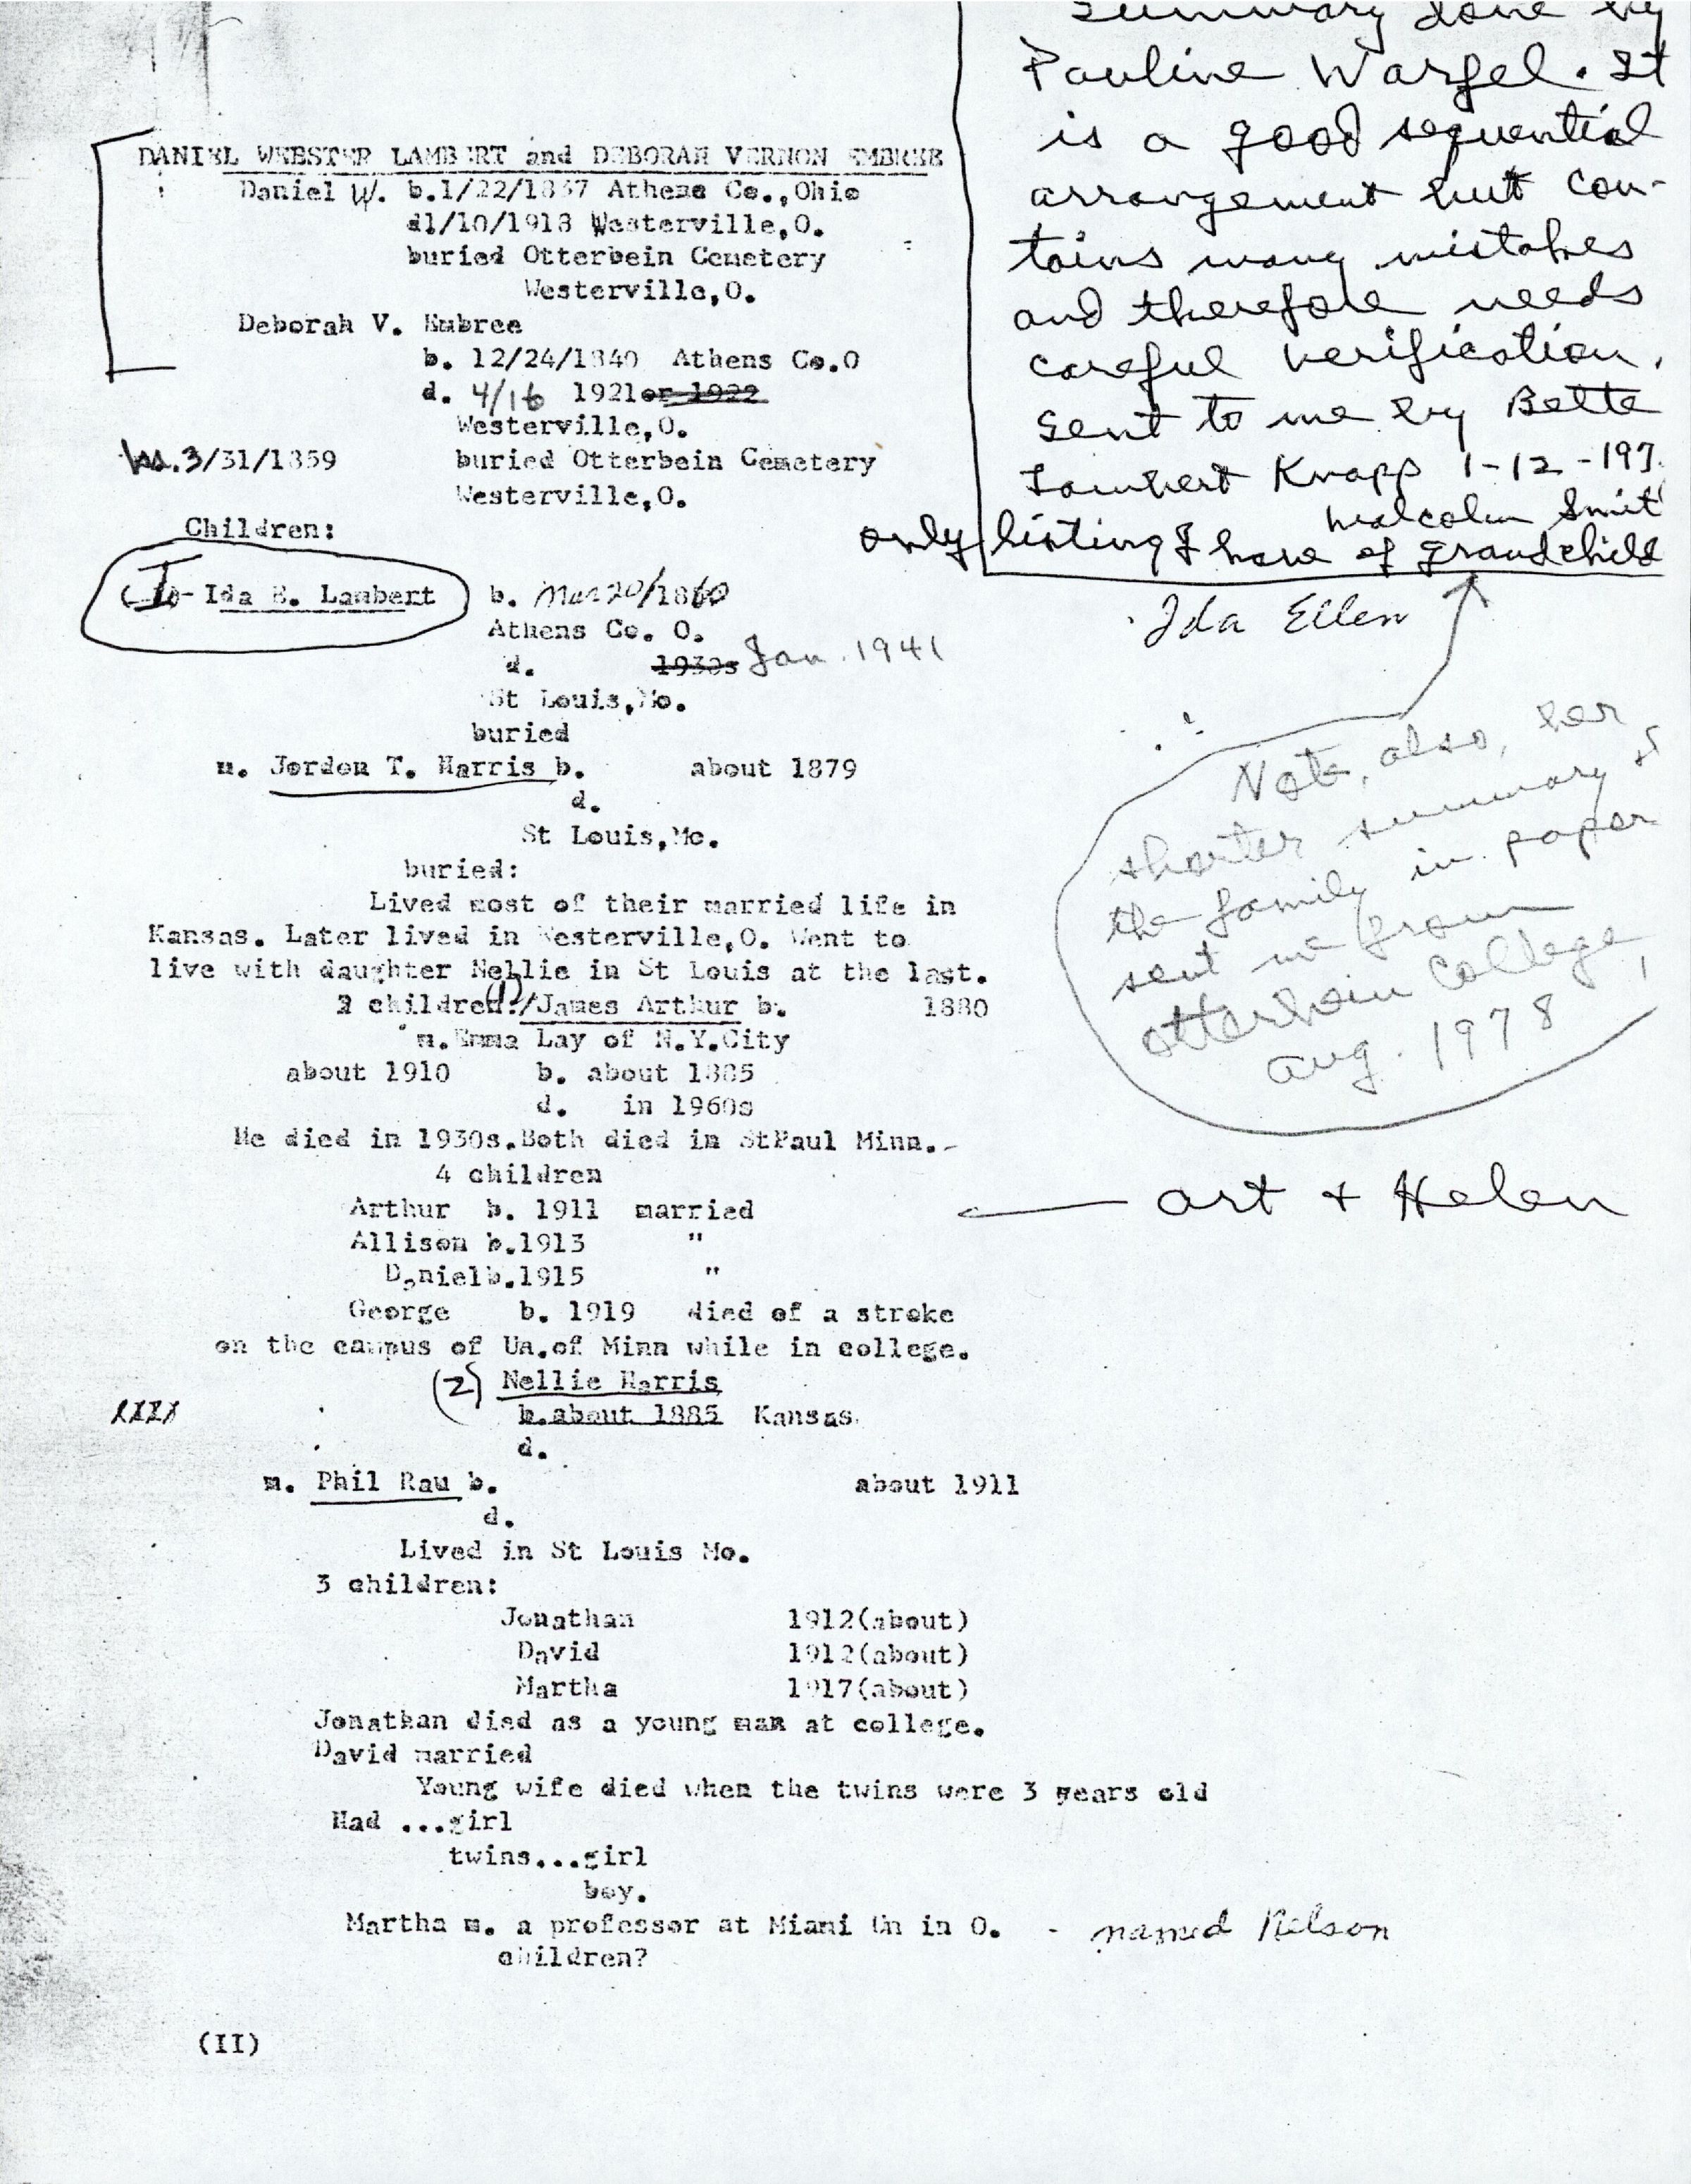 Summary done by
Pauline Warfel. It
is a good sequential
arrangement but con-
tains many mistakes
and therefore needs
careful verification.
Sent to me by Bette
Lambert Knapp 1-12-197
Malcolm Smit
only listing I have of grandchild
DANIEL WEBSTER LAMBERT and DEBORAH VERNON EMBREE
Daniel W. b.1/22/1837 Athens Co.,Ohio
d1/10/1918 Westerville,O.
buried Otterbein Cemetery
Westerville,O.
Deborah V. Embree
b. 12/24/1840 Athens Co.O
d. 4/16 1921 or 1922
Westerville,O.
m.3/31/1859 buried Otterbein Cemetery
Westerville,O.
Children:
(I)- Ida E. Lambert b. Mar 20/1860
Ida Ellen
Athens Co. O.
d. 1930s Jan. 1941
St Louis,Mo.
buried
m. Jordon T. Harris b. about 1879
d.
St Louis,Mo.
buried:
Note, also, her
shorter summary of
the family in paper
sent me from
Otterbein College,
Aug. 1978
Lived most of their married life in
Kansas. Later lived in Westerville,O. Went to
live with daughter Nellie in St Louis at the last.
2 children:/(1) James Arthur b. 1880
m.Emma Lay of N.Y.City
about 1910 b. about 1885
d. in 1960s
He died in 1930s.Both died in StPaul Minn.-
4 children
Arthur b. 1911 married
Art + Helen
Allison b.1913 "
Danielb.1915 "
George b. 1919 died of a stroke
on the campus of Un.of Minn while in college.
(2) Nellie Harris
XXXX b.about 1885 Kansas
d.
m. Phil Rau b. about 1911
d.
Lived in St Louis Mo.
3 children:
Jonathan 1912(about)
David 1912(about)
Martha 1917(about)
Jonathan died as a young man at college.
David married
Young wife died when the twins were 3 years old
Had ...girl
twins...girl
boy.
Martha m. a professor at Miami Un in O. - named Nelson
children?
(II)